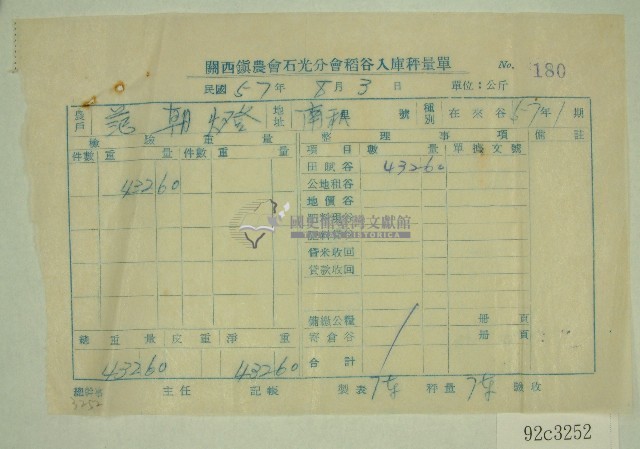 關西鎮農會石光分會稻谷入庫秤量單 No. 180
民國 57年 8月 3日 單位：公斤
農戶 范朝燈 地址 南 號 種別 在來谷 57年1期
檢驗重量 整理事項 備註
件數 重量 件數 重量 項目 數量 單據文號
43260 田賦谷 43260
公地租谷
地價谷
國史館臺灣文獻館
TAIWAN HISTORICA
貸款收回
公糧 冊頁
寄倉谷 冊頁
總重量 皮重 淨重 合計
43260 43260
總幹事 主任 記帳 製表 秤量 驗收
3252
92c3252